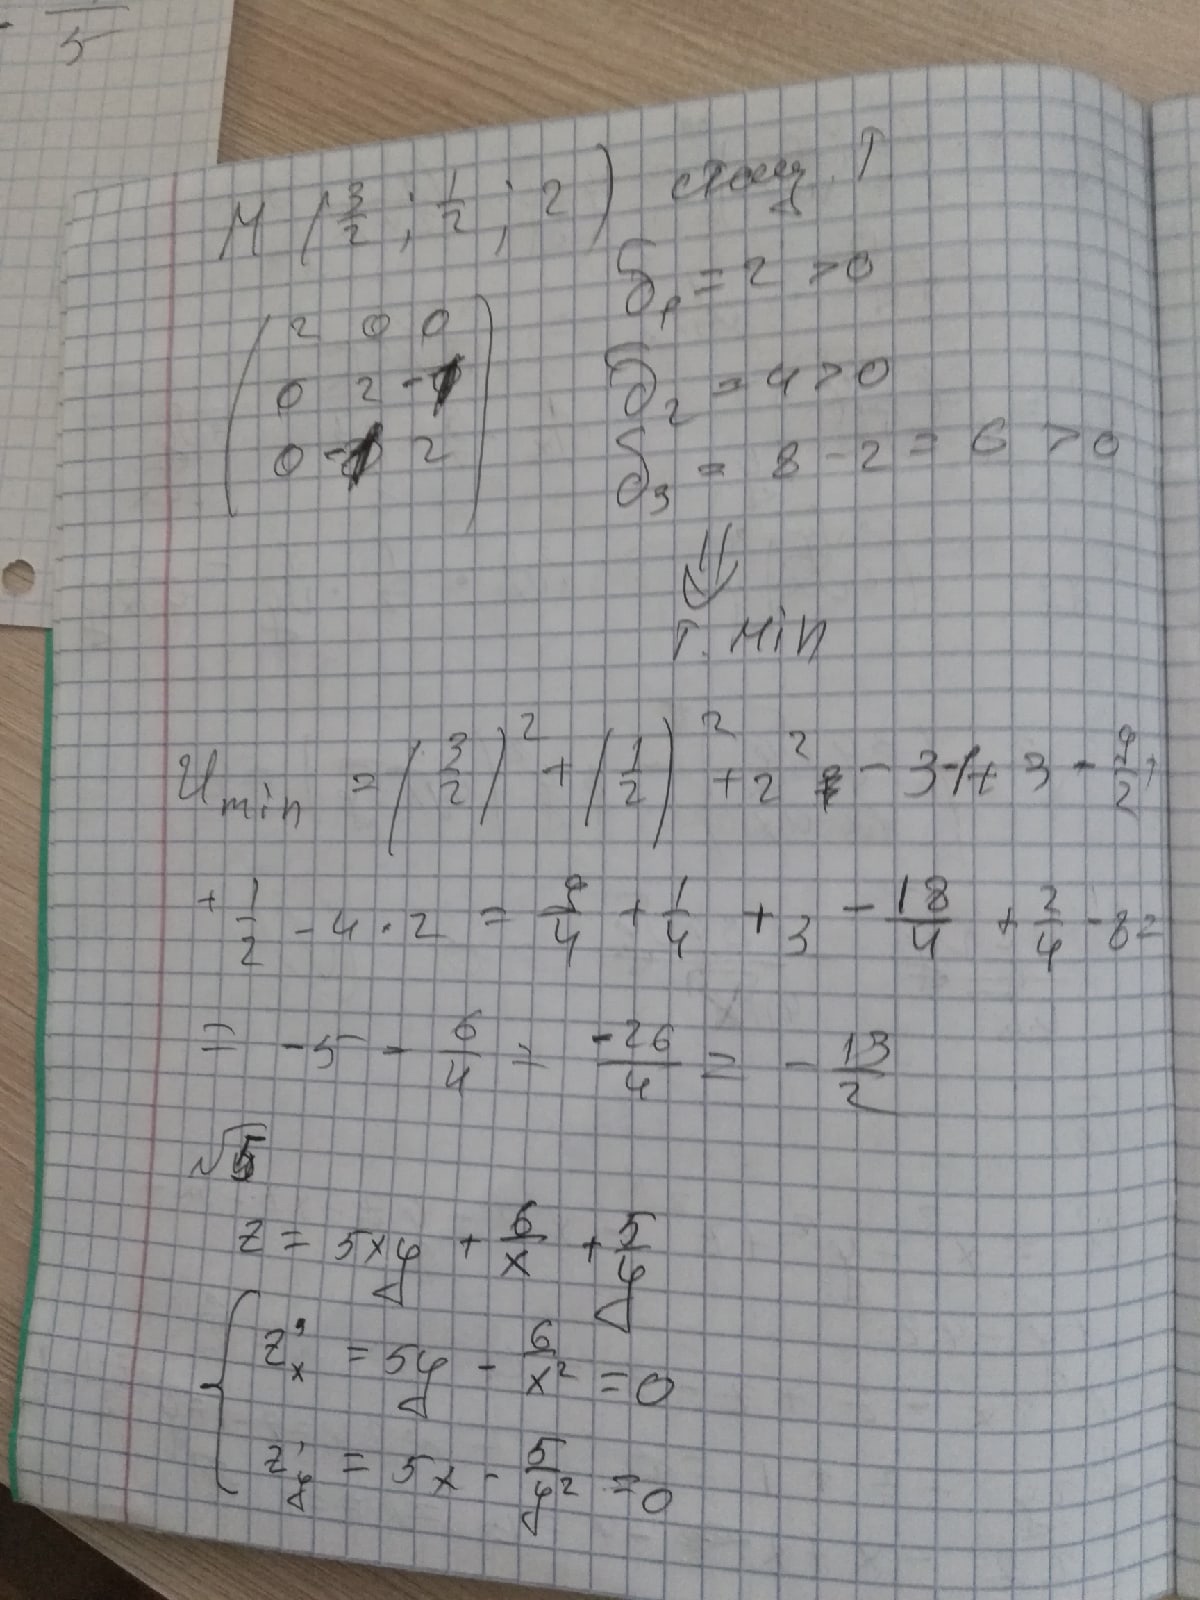 5
M (3/2 ; 1/2 ; 2) стац. т
( 2 0 0
0 2 -1
0 -1 2 )
δ₁ = 2 > 0
δ₂ = 4 > 0
δ₃ = 8 - 2 = 6 > 0
⇓
т. min
U min = (3/2)² + (1/2)² + 2² - 3 + 3 - 9/2 +
+ 1/2 - 4 · 2 = 9/4 + 1/4 + 3 - 18/4 + 2/4 - 8 =
= -5 - 6/4 = -26/4 = - 13/2
√5
z = 5xy + 6/x + 5/y
{ z'x = 5y - 6/x² = 0
z'y = 5x - 5/y² = 0